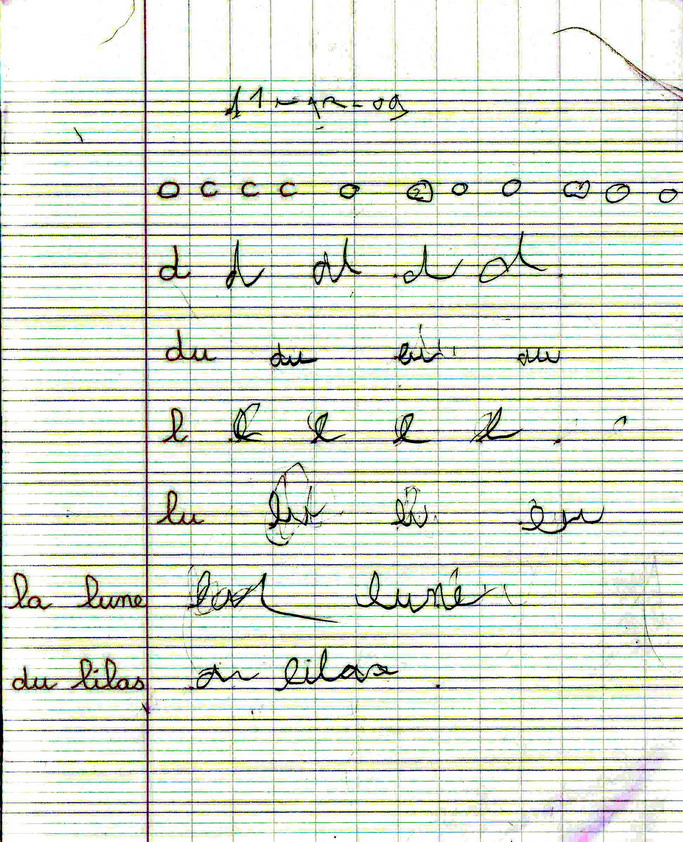 o c c c o o o o o o
d d d d d
du du du
l l l l l
lu lu lu
la lune la lune
du lilas lilas